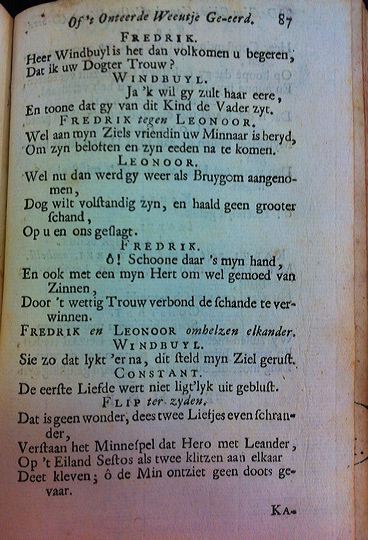 Of't Onteerde Weentje Ge-eerd. 87
FREDRIK.
Heer Windbuyl is het dan volkomen u begeren,
Dat ik uw Dogter Trouw?
WINDBUYL.
Ja 'k wil gy zult haar eere,
En toone dat gy van dit Kind de Vader zyt.
FREDRIK tegen LEONOOR.
Wel aan myn Ziels vriendin uw Minnaar is beryd,
Om zyn beloften en zyn eeden na te komen.
LEONOOR.
Wel nu dan werd gy weer als Bruygom aangeno-
men,
Dog wilt volstandig zyn, en haald geen grooter
schand,
Op u en ons geslagt.
FREDRIK.
ô! Schoone daar 's myn hand,
En ook met een myn Hert om wel gemoed van
Zinnen,
Door 't wettig Trouw verbond de schande te ver-
winnen.
FREDRIK en LEONOOR omhelzen elkander.
WINDBUYL.
Sie zo dat lykt 'er na, dit steld myn Ziel gerust.
CONSTANT.
De eerste Liefde wert niet ligt'lyk uit geblust.
FLIP ter zyden.
Dat is geen wonder, dees twee Liefjes even schran-
der,
Verstaan het Minnespel dat Hero met Leander,
Op 't Eiland Sestos als twee klitzen aan elkaar
Deet kleven; ô de Min ontziet geen doots ge-
vaar.
KA-